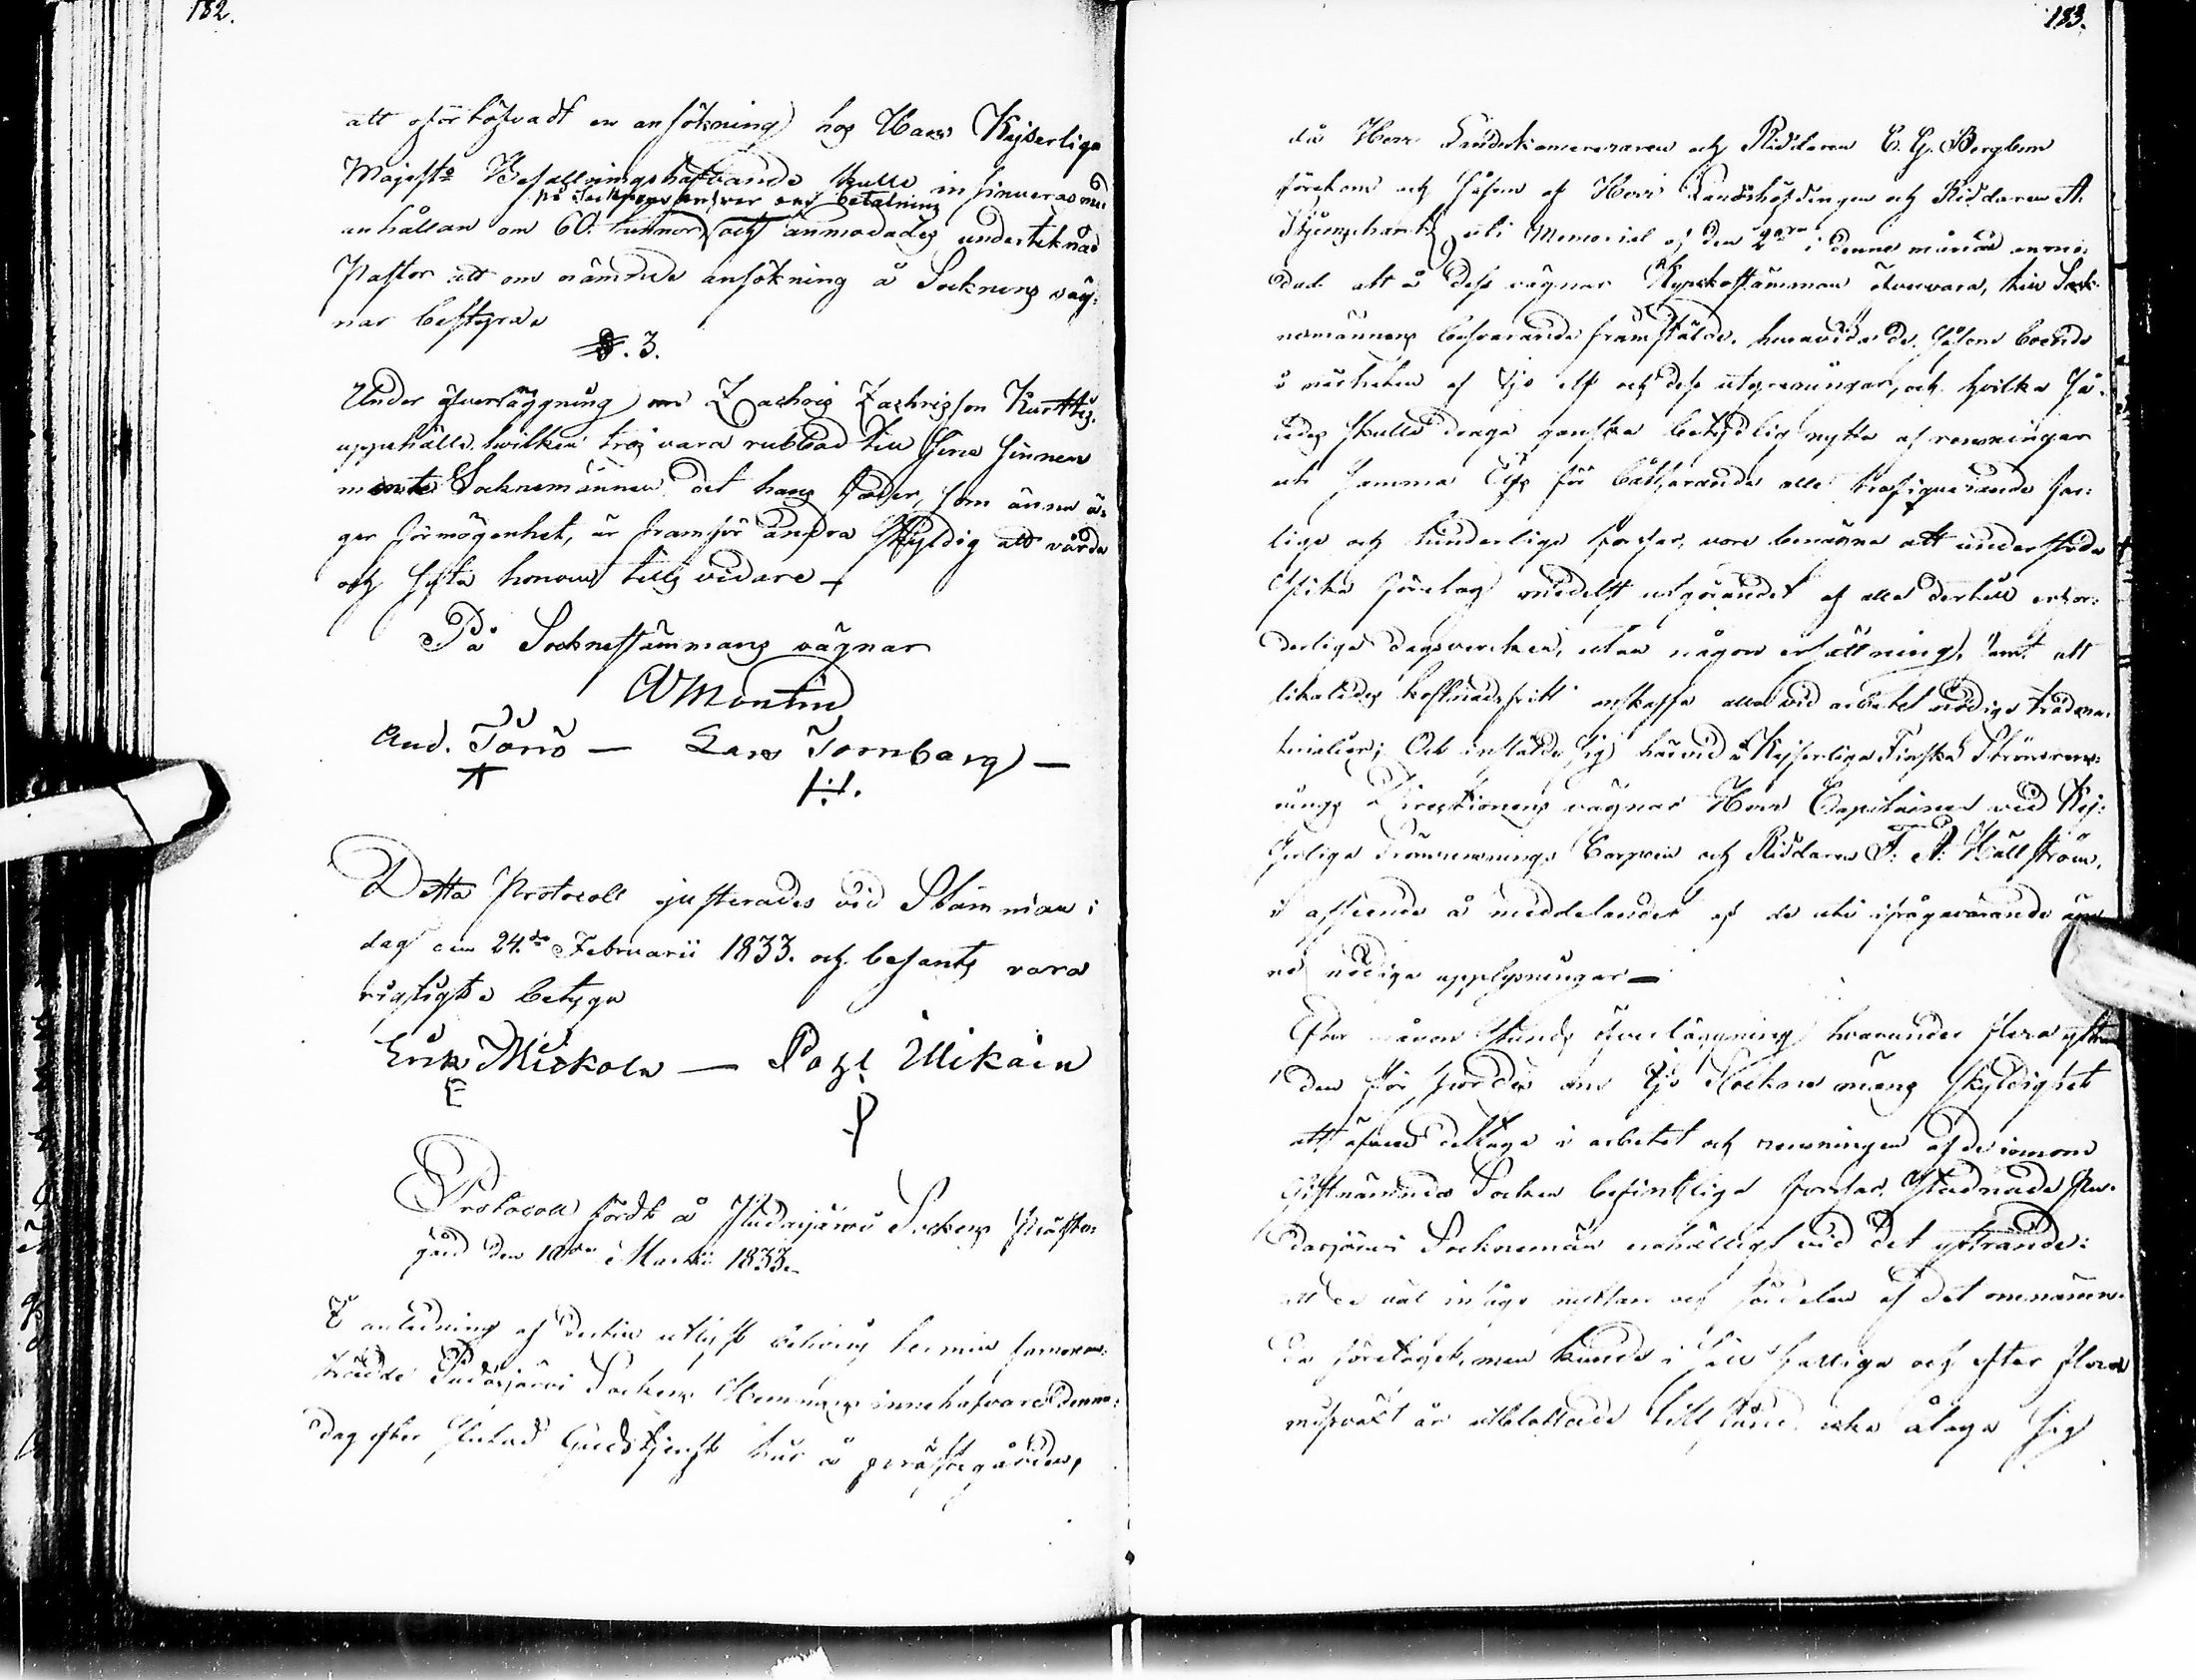 182.
att oförtöfvadt en ansökning hos Hans Kejserliga
Majest:s Befallningshafvande skulle insinueras med
på Socknens ansvar och betalning
anhållan om 60. tunnor och anmodades undertecknad
Pastor att om nämnde ansökning å Socknens väg:
nar bestyra
§. 3.
Under öfverläggning om Zachris Zachrisson Kurttis
uppehälle, hvilken tros vara rubbad till sina sinnen
mente Socknemännen det hans fader, som ännu ä:
ger förmögenhet, är framför andra skyldig att vårda
och sysla honom tills vidare
På Sockneståmmans vägnar
Montin
And. Törrö — Lars Tornberg —
Detta Protocoll justerades vid Stämman i
dag den 24:de Februarii 1833. och befants vara
rigtigt betyga
Erik Mickola — Påhl Illikain
Protocoll fördt å Pudasjärvi Sockens Präste:
gård den 10de Martii 1833.
I anledning af dertill utlyst behörig termin samman:
trädde Pudasjärvi Sockens Hemmans innehafvare denna
dag efter slutad Gudstjenst här å prästegården,
183.
då Herr Landskamereraren och Riddaren E. G. Bergbom
förekom och såsom af Herr Landshöfdingen och Riddaren
Stjernschantz uti Memorial af den 2dra i denna månad anmo:
dad att å dess vägnar Kyrkostämman öfvervara, till Sock:
nemännens besvarande framstälde, huruvida de, såsom boende
i närheten af Ijo elf och dess utgreningar, och hvilka så:
ledes skulle draga ganska betydlig nytta af rensningar
uti samma Elf för båtfarande alla trafiquerande far:
liga och hinderliga forssar, voro benägna att understöda
slika företag medelst utgörandet af alla dertill erfor:
derliga dagsverken, utan någon ersättning, samt att
likaledes kostnadsfritt anskaffa alla vid arbetet nödiga trädma:
terialier; Och instälde sig härvid å Kejserliga Finska Strömrens:
nings Directionens vägnar Herr Capitainen vid Kej:
serliga Strömrensnings Corpsen och Riddaren Hällström,
i afseende å meddelandet af de uti ifrågavarande äm
ne nödiga upplysningar —
Efter någon stunds öfverläggning hvarunder flera yttran
den för spordes om Ijo Sockne mäns skyldighet
att äfven deltaga i arbetet och rensningen af de innom
sistnämnda Socken befintliga forssar, stadnade Pu:
dasjärvi Sockneman enhälligt vid det yttrande:
att de väl insågo nyttan och fördelen af det omnämn:
da företaget, men kunde i sitt fattiga och efter flera
missväxt år utblottade tillstånd icke åtaga sig